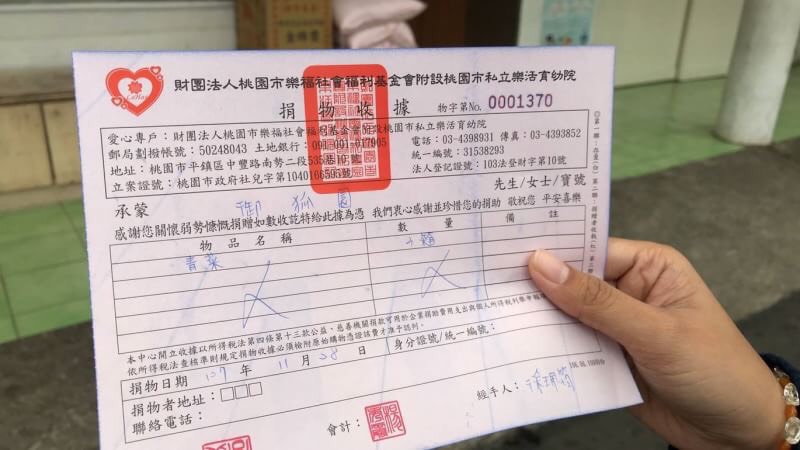 財團法人桃園市樂福社會福利基金會附設桃園市私立樂活育幼院
捐物收據
物字第No. 0001370
愛心專戶:財團法人桃園市樂福社會福利基金會附設桃園市私立樂活育幼院
郵局劃撥帳號:50248043 土地銀行:091-001-017905
電話:03-4398931 傳真:03-4393852
地址:桃園市平鎮區中豐路南勢二段535巷10號
統一編號:31538293
立案證號:桃園市政府社兒字第1040166595號
法人登記證號:103法登財字第10號
承蒙 御狐園 先生/女士/寶號
感謝您關懷弱勢慷慨捐贈如數收訖特給此據為憑 我們衷心感謝並珍惜您的捐助 敬祝您 平安喜樂
物品名稱 數量 備註
青菜 十箱
本中心開立收據以所得稅法第四條第十三款公益、慈善機關捐款可用於企業捐助費用支出與個人所得稅列舉申
依所得稅法查核準則規定捐物收據必須檢附原始購物憑證該費才准予認列。
捐物日期 107 年 11 月 28 日
身分證號/統一編號:
捐物者地址:
聯絡電話:
會計:
經手人: